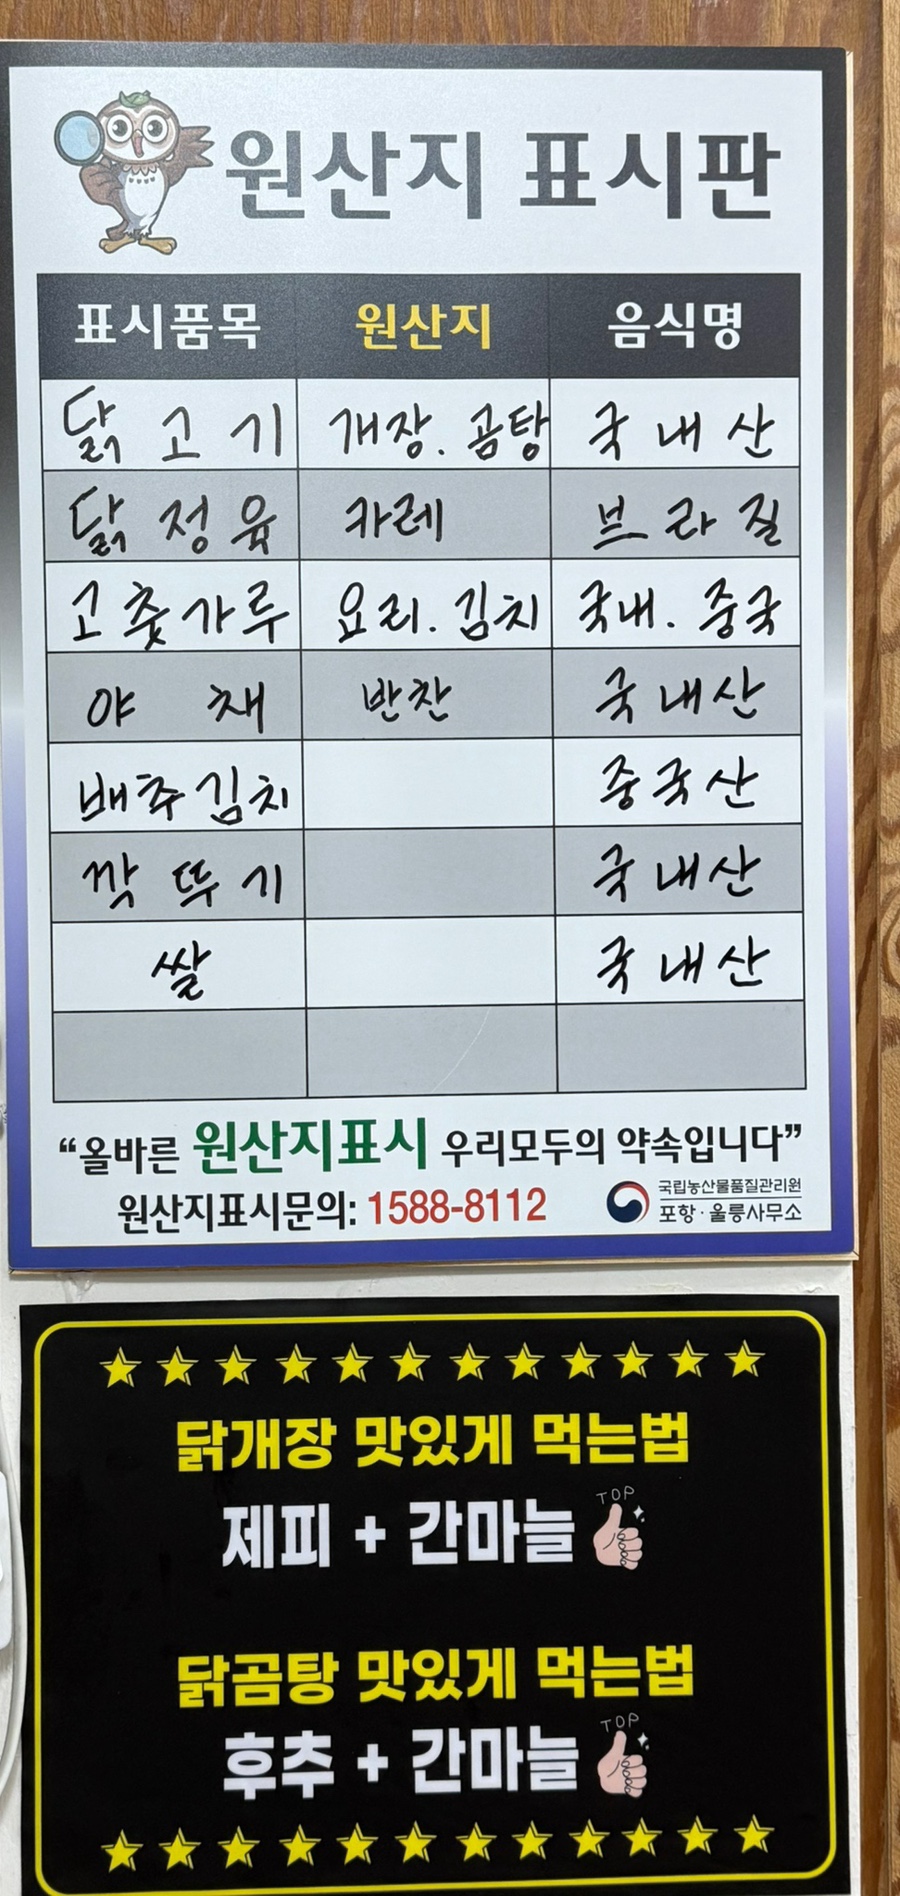 원산지 표시판
표시품목 원산지 음식명
닭고기 개장.곰탕 국내산
닭정육 카레 브라질
고춧가루 요리.김치 국내.중국
야채 반찬 국내산
배추김치 중국산
깍뚜기 국내산
쌀 국내산
“올바른 원산지표시 우리모두의 약속입니다”
원산지표시문의: 1588-8112
국립농산물품질관리원
포항·울릉사무소
닭개장 맛있게 먹는법
TOP
제피 + 간마늘
닭곰탕 맛있게 먹는법
TOP
후추 + 간마늘